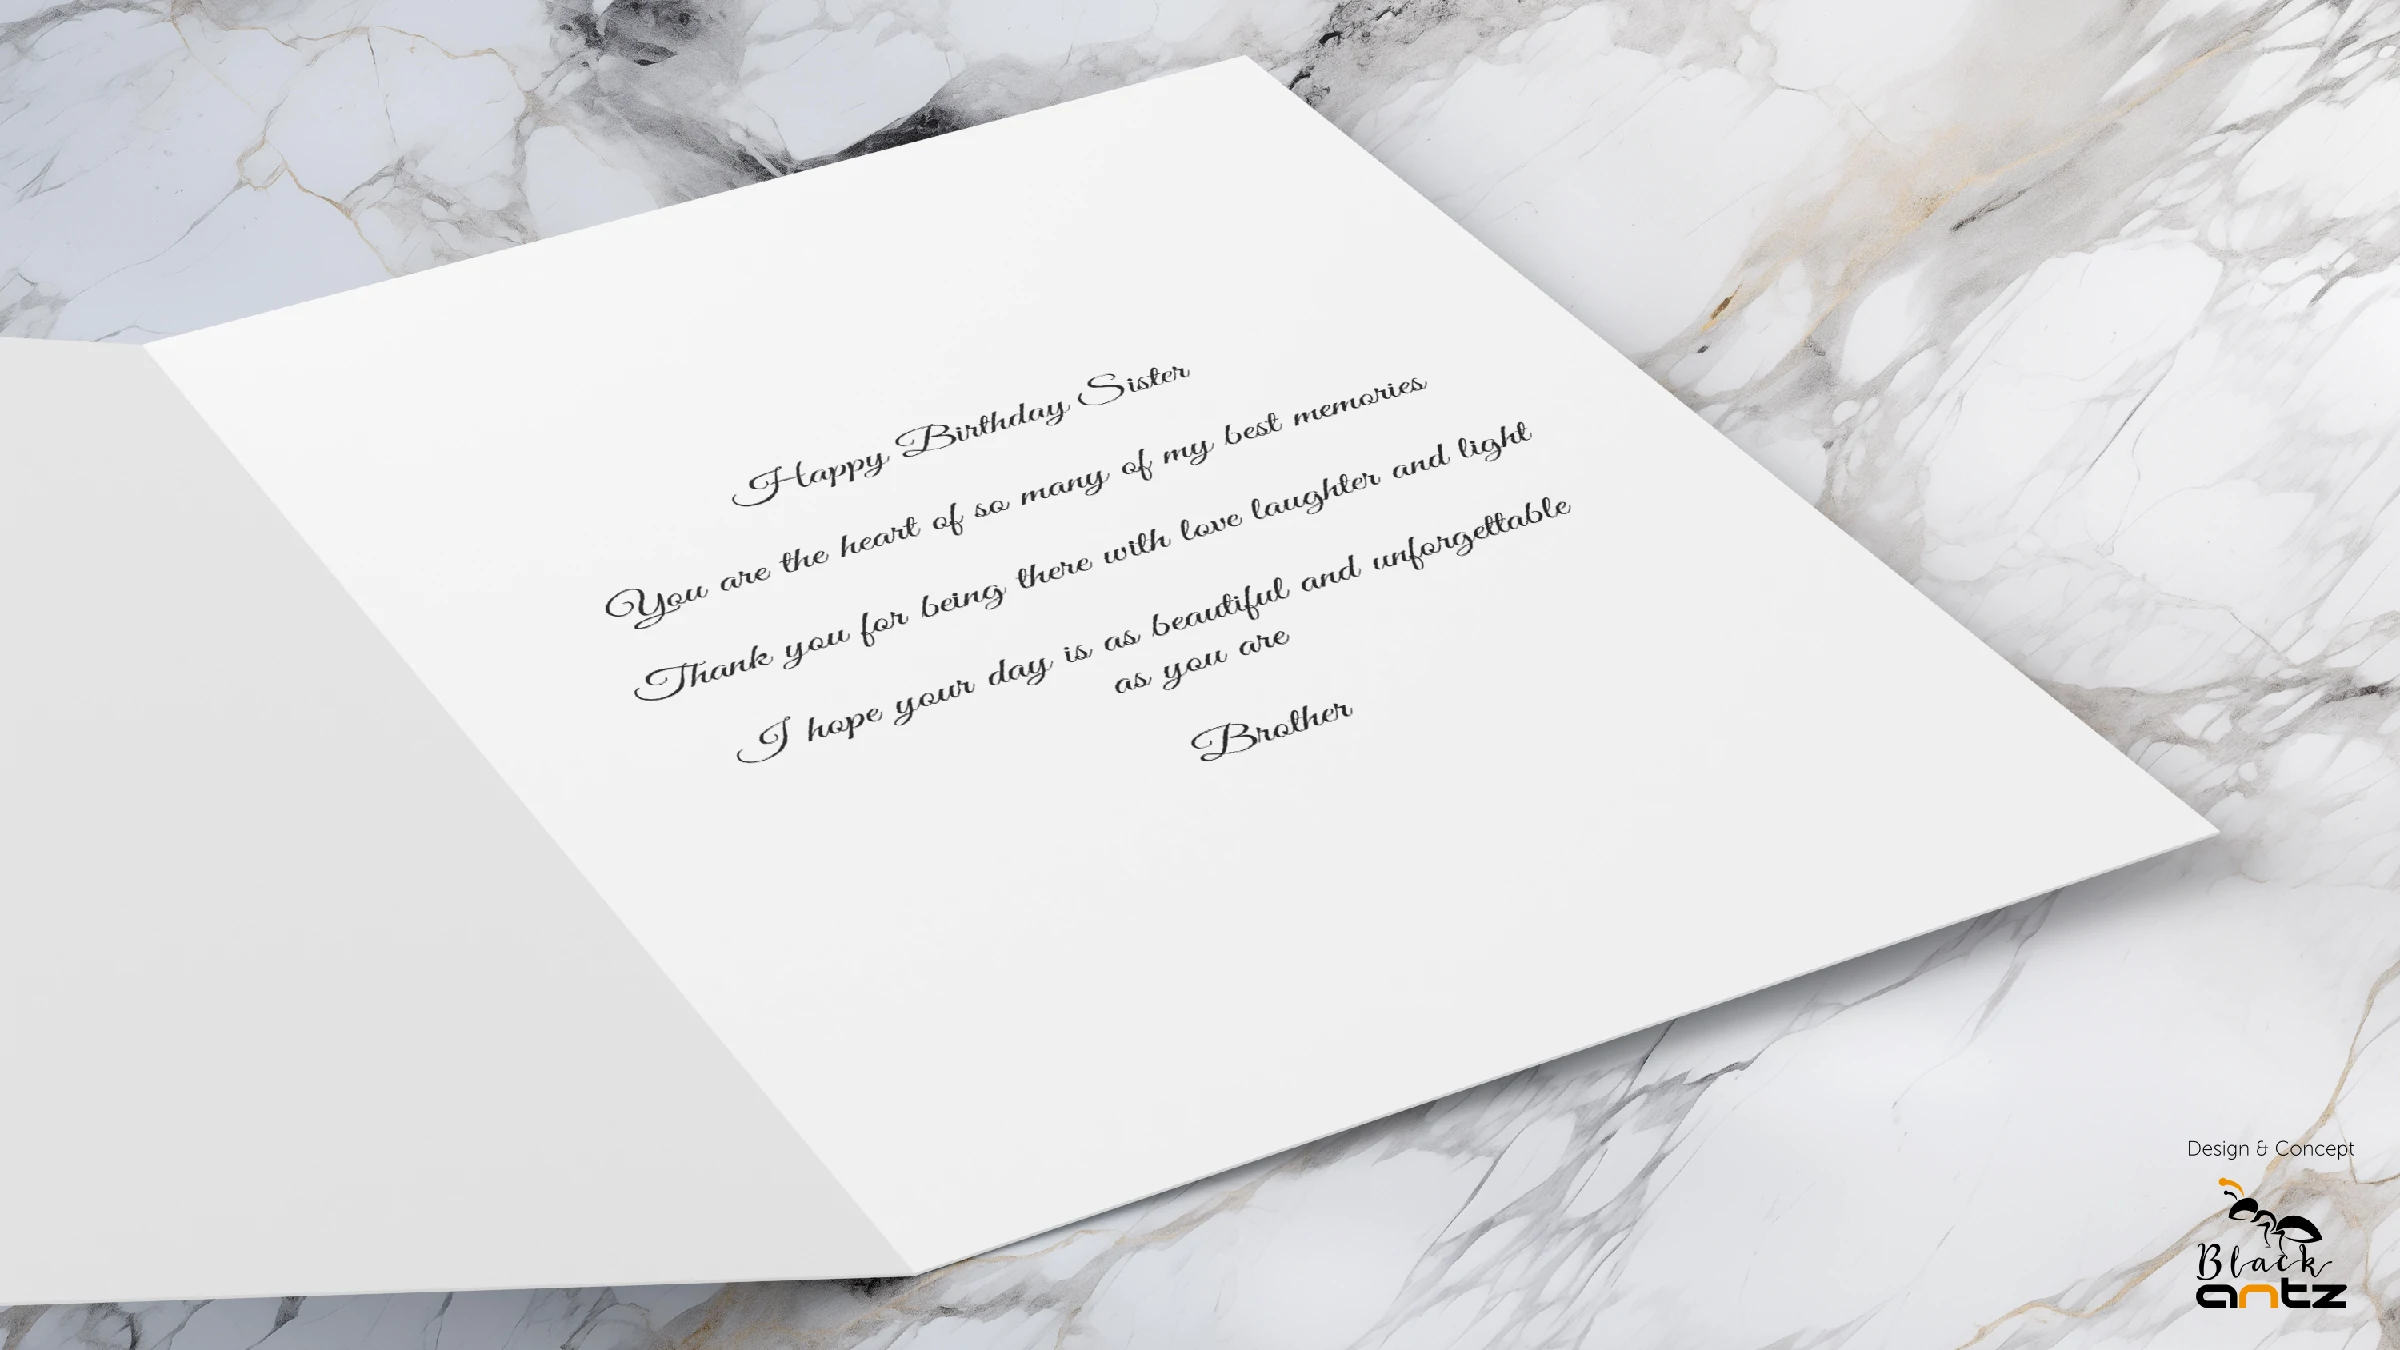 Happy Birthday Sister
You are the heart of so many of my best memories
Thank you for being there with love laughter and light
I hope your day is as beautiful and unforgettable
as you are
Brother
Design & Concept
Black
antz